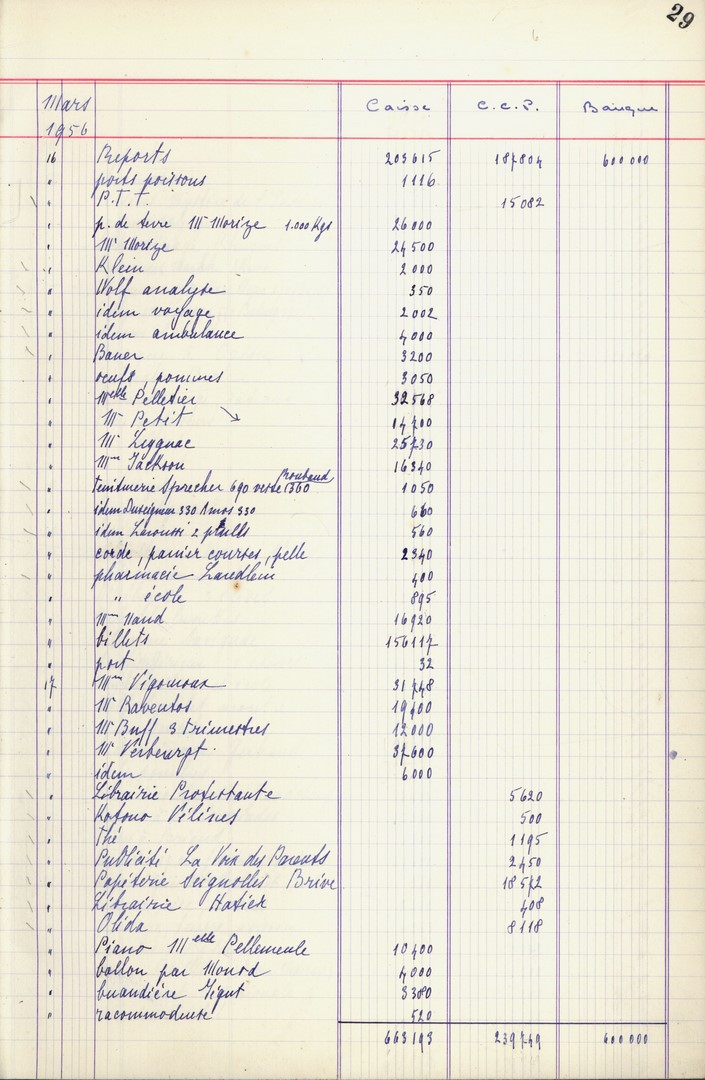 29
Mars
1956
Caisse C.C.P. Banque
16 Reports 203615 187804 600000
" ports poissons 1116
" P.T.T. 15082
" p. de terre Mr Morize 1.000 Kgs 26000
" Mr Morize 24500
" Klein 2000
" Wolf analyse 350
" idem voyage 2002
" idem ambulance 4000
" Bauer 3200
" oeufs, pommes 3050
" Melle Pelletier 32568
" Mr Petit 14700
" Mr Zygnac 25730
" Mme Jackson 16340
" teinturerie Sprecher 690 veste Roubaud 1360 1050
" idem Duseigneur 330 Amos 330 660
" idem Laroussi 2 pulls 560
" corde, panier courses, pelle 2340
" pharmacie Laredlein 400
" " école 895
" Mme Nand 16920
" billets 156117
" port 32
17 Mme Vigouroux 31748
" Mr Raventos 19400
" Mr Buff 3 trimestres 12000
" Mr Verbeurgt 37600
" idem 6000
" Librairie Protestante 5620
" Kofono Vélines 500
" Thé 1195
" Publicité La Voix des Parents 2450
" Papéterie Seignolles Brive 18572
" Librairie Hatier 408
" Olida 8118
" Piano Melle Pellemeule 10400
" ballon par Monod 4000
" buandière Gigut 3380
" racommodeuse 520
663193 239749 600000